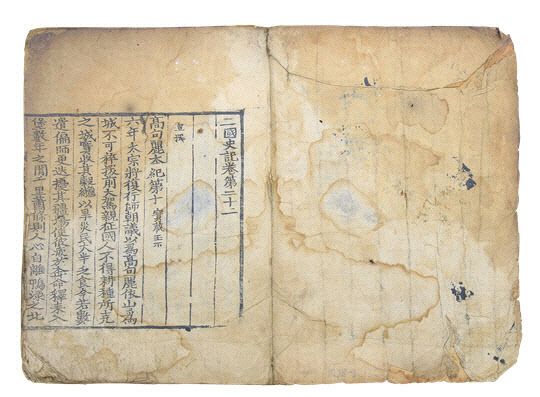 三國史記卷第二十二
宣撰
高句麗本紀第十 寳藏王下
六年太宗將復行師朝議以爲高句麗依山爲
城不可猝拔前大駕親征國人不得耕種所克
之城實收其穀繼以旱災民太半乏食今若數
遣偏師更迭擾其疆埸使彼疲於奔命釋耒入
堡數年之間千里蕭條則人心自離鴨渌之北